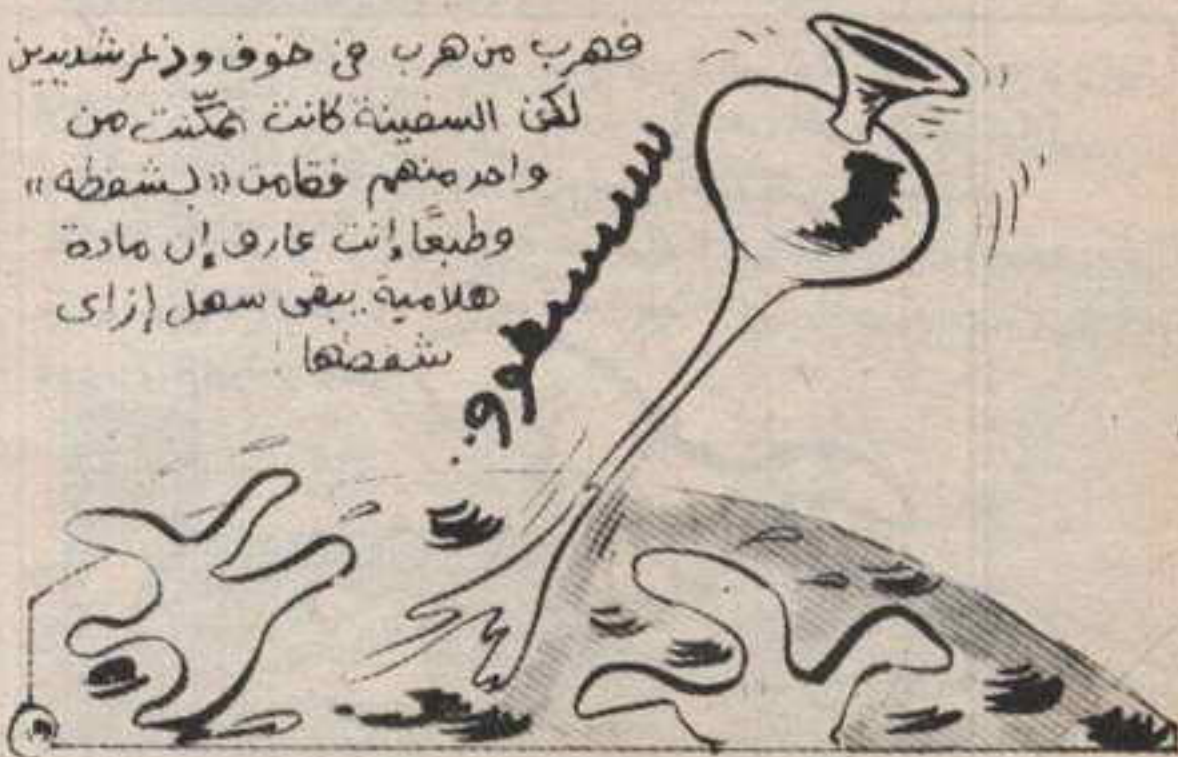 فهرب من هرب في خوف وذعر شديدين
لكن السفينة كانت تمكّنت من
واحد منهم فقامت «بشفطه»
وطبعًا إنت عارف إن مادة
هلامية يبقى سهل إزاى
شفطها !
سسسسسفوو